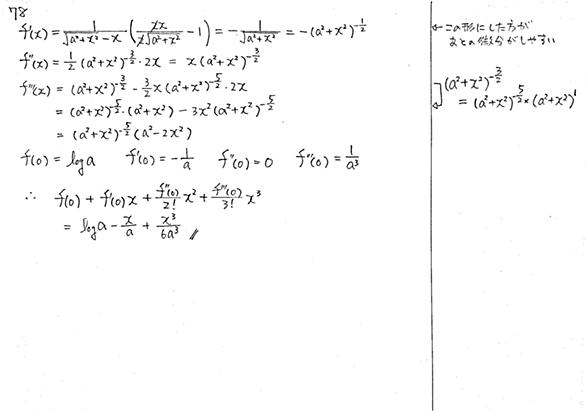 78
f'(x) = 1/(√(a²+x²) - x) (2x/(2√(a²+x²)) - 1) = - 1/√(a²+x²) = -(a²+x²)^(-1/2)
f''(x) = 1/2 (a²+x²)^(-3/2)・2x = x(a²+x²)^(-3/2)
f'''(x) = (a²+x²)^(-3/2) - 3/2 x(a²+x²)^(-5/2)・2x
= (a²+x²)^(-5/2)・(a²+x²) - 3x²(a²+x²)^(-5/2)
= (a²+x²)^(-5/2)(a²-2x²)
f(0) = log a f'(0) = -1/a f''(0) = 0 f'''(0) = 1/a³
∴ f(0) + f'(0)x + f''(0)/2! x² + f'''(0)/3! x³
= log a - x/a + x³/6a³ //
←この形にした方が
あとの微分がしやすい
(a²+x²)^(-3/2)
= (a²+x²)^(-5/2) × (a²+x²)¹